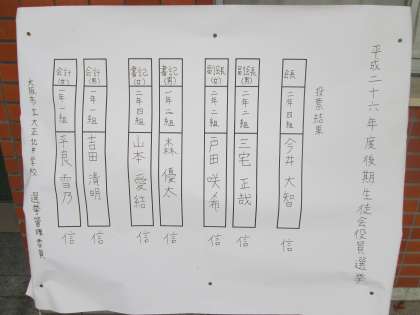 平成二十六年度後期生徒会役員選挙
投票結果
会長 二年四組 今井 大智 信
副会長(男) 二年二組 三宅 正哉 信
副会長(女) 二年二組 戸田 咲希 信
書記(男) 一年二組 森 優太 信
書記(女) 二年四組 山本 愛結 信
会計(男) 一年一組 吉田 清明 信
会計(女) 一年一組 平良 雪乃 信
大阪市立大正北中学校 選挙管理委員